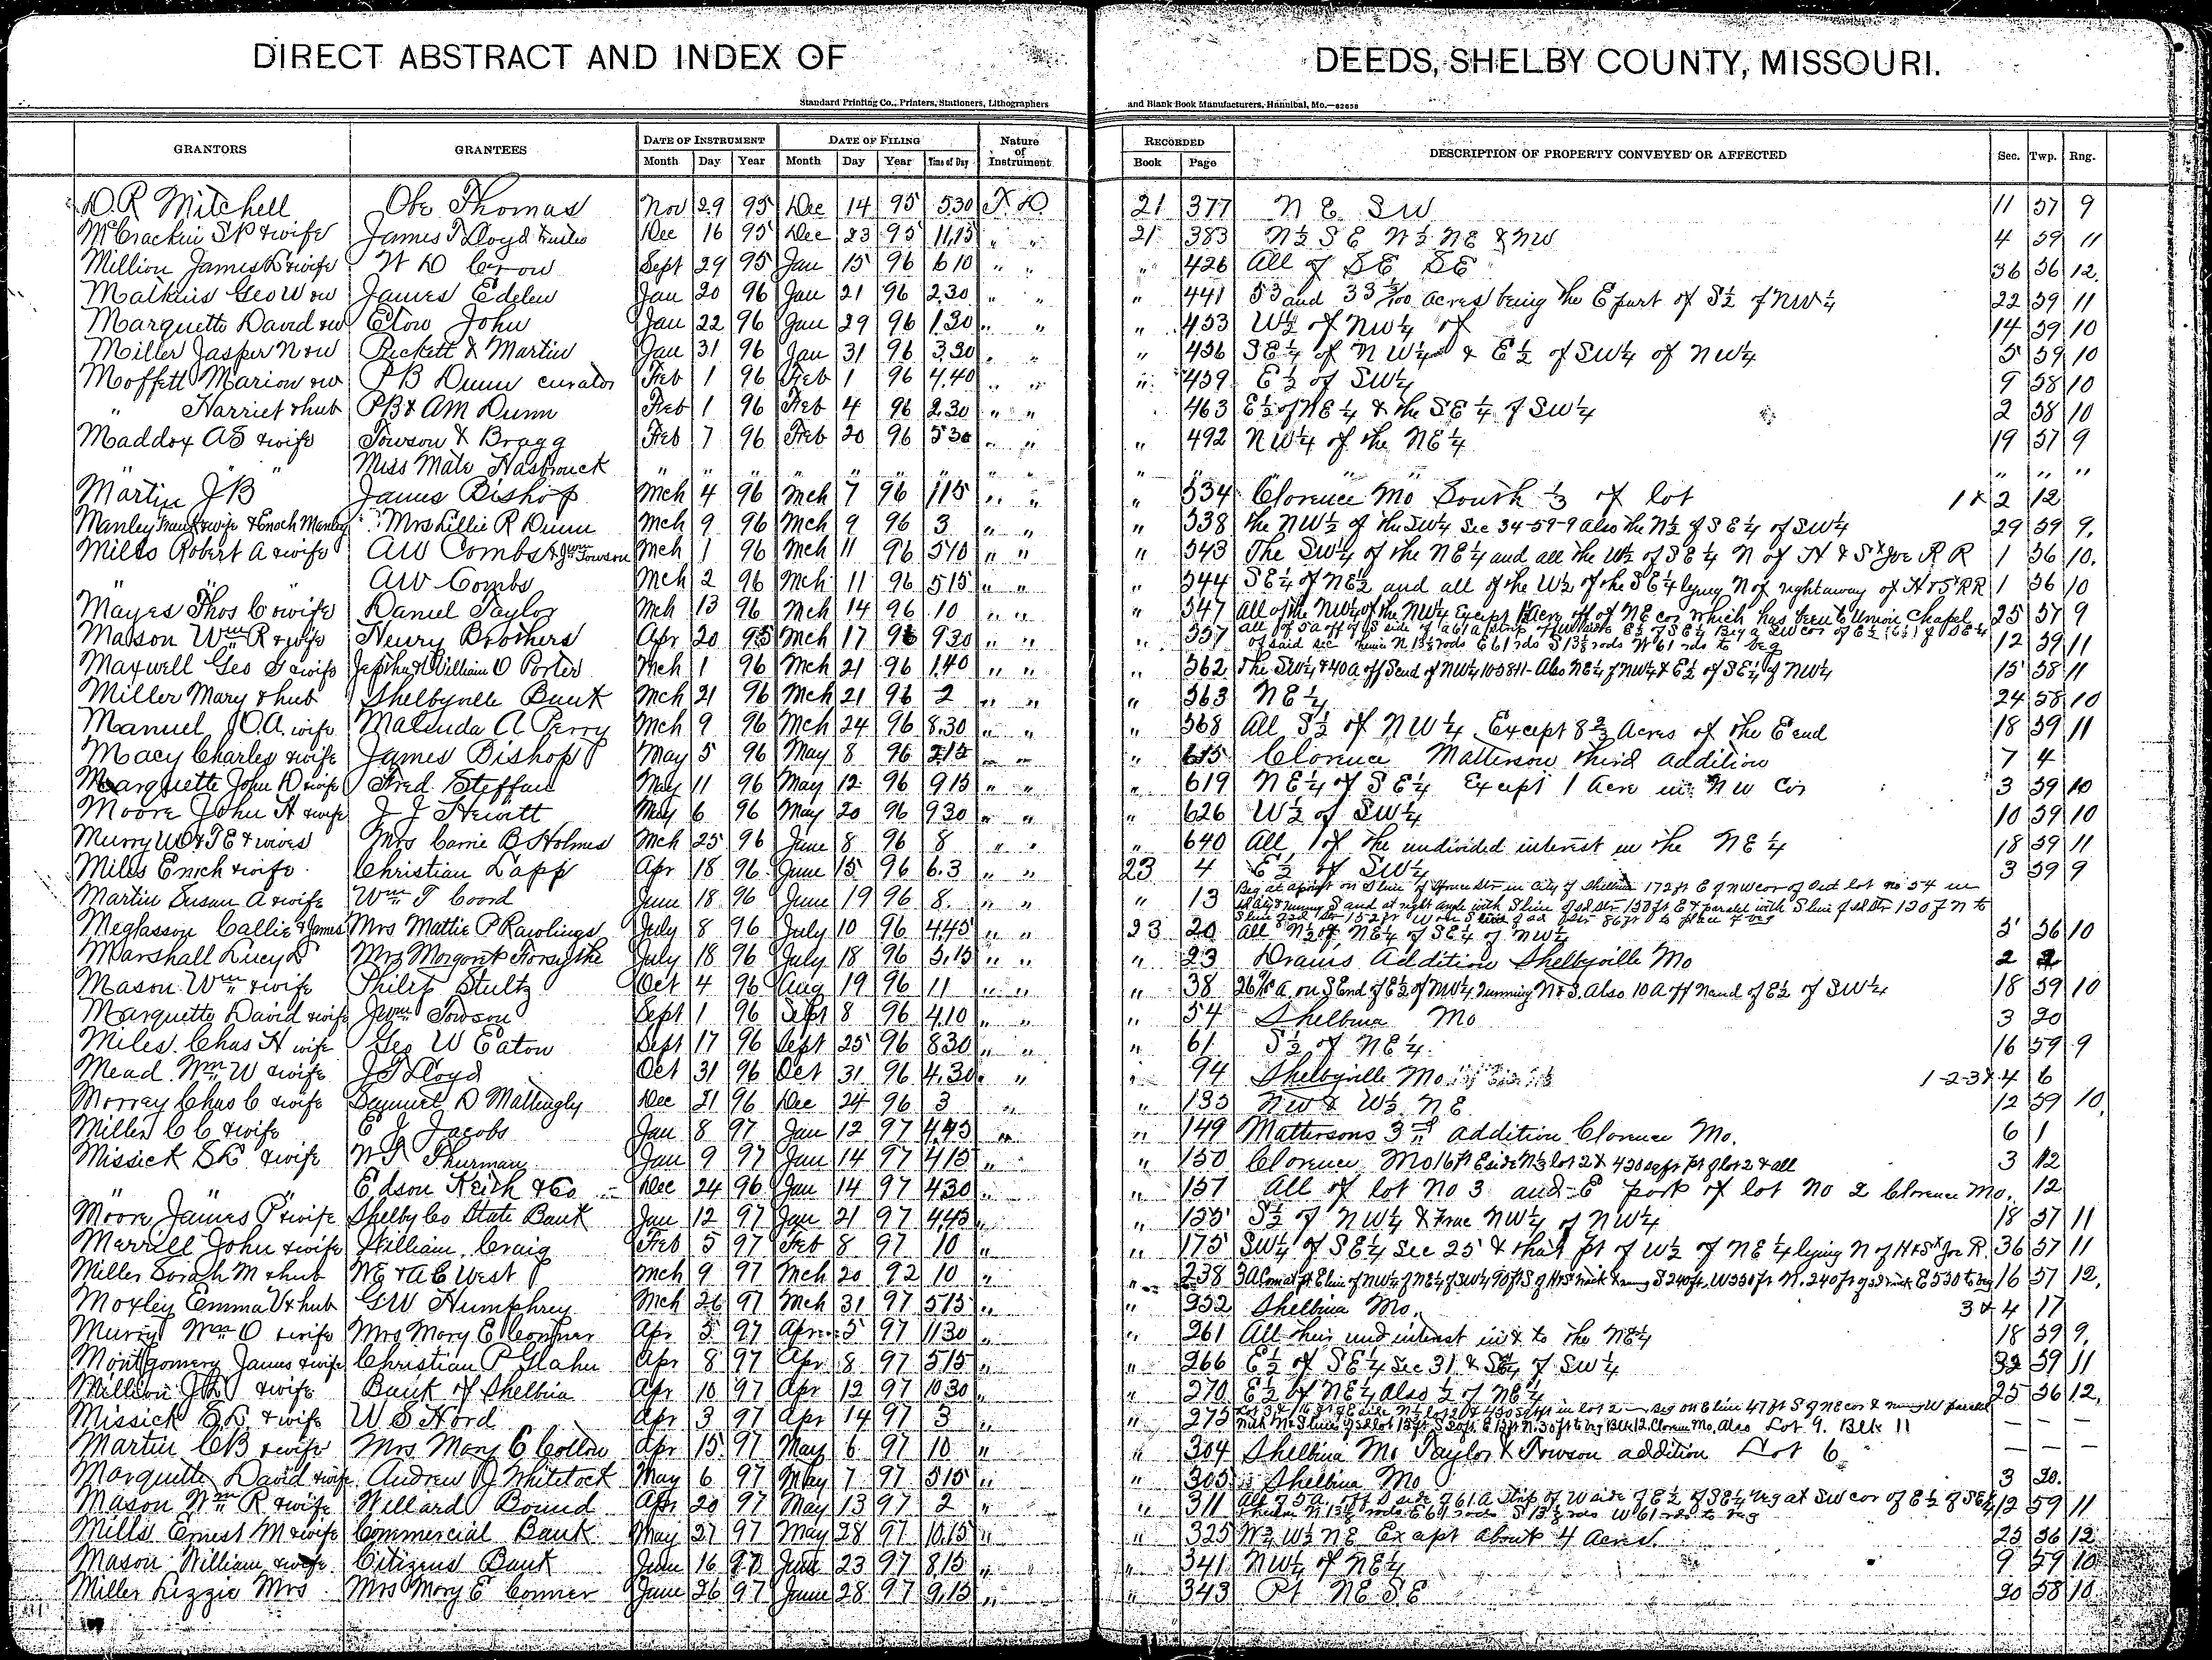 DIRECT ABSTRACT AND INDEX OF DEEDS, SHELBY COUNTY, MISSOURI.
Standard Printing Co., Printers, Stationers, Lithographers and Blank Book Manufacturers, Hannibal, Mo.—82658
GRANTORS GRANTEES DATE OF INSTRUMENT DATE OF FILING Nature of Instrument RECORDED DESCRIPTION OF PROPERTY CONVEYED OR AFFECTED Sec. Twp. Rng.
Month Day Year Month Day Year Time of Day Book Page
D. R Mitchell Obe Thomas Nov 29 95 Dec 14 95 530 T. D. 21 377 N E SW 11 57 9
McCrackin S P & wife James T Lloyd Trustee Dec 16 95 Dec 23 95 11,15 " " 21 383 N½ S E W½ NE & NW 4 59 11
Million James & wife W D Crow Sept 29 95 Jan 15 96 610 " " " 426 All of SE SE 36 56 12.
Matkins Geo W & w James Edelen Jan 20 96 Jan 21 96 2,30 " " " 441 53 and 33 /100 acres being the E part of S½ of NW¼ 22 59 11
Marquette David & w Elow John Jan 22 96 Jan 29 96 1.30 " " " 453 W½ of NW¼ of 14 59 10
Miller Jasper N & w Pickett & Martin Jan 31 96 Jan 31 96 3,30 " " " 456 SE¼ of NW¼ & E½ of SW¼ of NW¼ 5 59 10
Moffett Marion & w P B Dunn curator Feb 1 96 Feb 1 96 4.40 " " " 459 E½ of SW¼ 9 58 10
" Harriet & hub PB & AM Dunn Feb 1 96 Feb 4 96 2.30 " " 463 E½ of NE¼ & the SE¼ of SW¼ 2 58 10
Maddox AS & wife Towson & Bragg Feb 7 96 Feb 20 96 530 " " " 492 NW¼ of the NE¼ 19 57 9
" " " Miss Mate Hasbrouck " " " " " " " " " " " " " " " "
Martin J B James Bishop Mch 4 96 Mch 7 96 115 " " " 534 Clarence Mo South ⅓ of lot 1 & 2 12
Manley Frank & wife & Enoch Manley Mrs Lillie R Dunn Mch 9 96 Mch 9 96 3 " " " 538 the NW½ of the SW¼ Sec 34-59-9 also the N½ of SE¼ of SW¼ 29 59 9.
Mills Robert A & wife AW Combs & Jno Towson Mch 1 96 Mch 11 96 510 " " " 543 The SW¼ of the NE¼ and all the W½ of SE¼ N of H & St Joe R R 1 56 10.
" " " AW Combs Mch 2 96 Mch 11 96 515 " " " 544 SE¼ of NE½ and all of the W½ of the SE¼ lying N of right away of H & St RR 1 56 10
Mayes Thos C & wife Daniel Taylor Mch 13 96 Mch 14 96 10 " " " 547 All of the NW¼ of the NW¼ Except 1 Acre off of NE cor which has been to Union Chapel 25 57 9
Mason Wm R & wife Henry Brothers Apr 20 95 Mch 17 96 930 " " " 557 All of 5a off of S side of a 61 a strip of W side E½ of SE¼ Beg a SW cor of E½ of SE¼
of said sec thence N 13⅓ rods E 61 rds S 13⅓ rods W 61 rds to beg 12 59 11
Maxwell Geo & wife William O Porter Mch 1 96 Mch 21 96 1.40 " " " 562 The SW¼ & 40a off S end of NW¼ 10-58-11- Also NE¼ of NW¼ & E½ of SE¼ of NW¼ 15 58 11
Miller Mary & hub Shelbyville Bank Mch 21 96 Mch 21 96 2 " " " 563 NE¼ 24 58 10
Manuel J.O.A. wife Malenda A Perry Mch 9 96 Mch 24 96 8.30 " " " 568 All S½ of NW¼ Except 8⅔ Acres of the E end 18 59 11
Macy Charles & wife James Bishop May 5 96 May 8 96 215 " " " 615 Clarence Matterson third addition 7 4
Marquette John D & wife Fred Steffan May 11 96 May 12 96 915 " " " 619 NE¼ of SE¼ Except 1 Acre in NW Cor 3 59 10
Moore John H & wife J J Hewitt May 6 96 May 20 96 930 " " " 626 W½ of SW¼ 10 59 10
Murry WO & TE & wives Mrs Carrie B Holmes Mch 25 96 June 8 96 8 " " " 640 All of the undivided interest in the NE¼ 18 59 11
Miles Enich & wife Christian Lapp Apr 18 96 June 15 96 6.3 " " 23 4 E½ of SW¼ 3 59 9
Martin Susan A & wife Wm T Coord June 18 96 June 19 96 8. " " " 13 Beg at a point on S line of Str in City of Shelbina 172 ft E of NW cor of Out lot no 54 in
running S and at right angle with S line of sd Str 150 ft E & paralel with S line of sd Str 120 ft N to
Meglasson Callie & James Mrs Mattie P Rawlings July 8 96 July 10 96 4.45 " " 23 20 All N½ of NE¼ of SE¼ of NW¼ 5 56 10
Marshall Lucy D Mrs Margaret Forsythe July 18 96 July 18 96 3,15 " " " 23 Drains Addition Shelbyville Mo 2 2
Mason Wm & wife Philip Stultz Oct 4 96 Aug 19 96 11 " " " 38 26 a. on S End of E½ of NW¼ running N & S. Also 10 A off N end of E½ of SW¼ 18 59 10
Marquette David & wife Jno Towson Sept 1 96 Sept 8 96 4.10 " " " 54 Shelbina Mo 3 20
Miles Chas H wife Geo W Eaton Sept 17 96 Sept 25 96 830 " " " 61 S½ of NE¼ 16 59 9
Mead Wm W & wife J T Lloyd Oct 31 96 Oct 31 96 4,30 " " 94 Shelbyville Mo 1-2-3 & 4 6
Morray Chas C & wife Samuel D Mattingly Dec 21 96 Dec 24 96 3 " " 135 NW & W½ NE 12 59 10.
Miller C C & wife E J Jacobs Jan 8 97 Jan 12 97 4,45 " " 149 Mattersons 3rd addition Clarence Mo. 6 1
Missick SK & wife W T Thurman Jan 9 97 Jan 14 97 415 " " 150 Clarence Mo 16 ft E side N½ lot 2 & 420 sq ft pt of lot 2 & all 3 12
" " " Edson Keith & Co Dec 24 96 Jan 14 97 430 " " 157 All of lot No 3 and E part of lot No 2 Clarence Mo. 12
Moore James P & wife Shelby Co State Bank Jan 12 97 Jan 21 97 4,45 " " 155 S½ of NW¼ & Frac NW¼ of NW¼ 18 57 11
Merrill John & wife William Craig Feb 5 97 Feb 8 97 10 " " 175 SW¼ of SE¼ Sec 25 & that pt of W½ of NE¼ lying N of H & St Joe R. 36 57 11
Miller Sarah M & hub WE & AC West Mch 9 97 Mch 20 92 10 " " 238 3A S 240 ft. W 550 ft N. 240 ft E 550 to beg 16 57 12.
Moxley Emma V & hub GW Humphrey Mch 26 97 Mch 31 97 515 " " 252 Shelbina Mo. 3 & 4 17
Murry Wm O & wife Mrs Mary E Conner Apr 5 97 Apr 5 97 1130 " " 261 All their und interest in & to the NE¼ 18 59 9.
Montgomery James & wife Christian P Glahn Apr 8 97 Apr 8 97 515 " " 266 E½ of SE¼ Sec 31 & SE¼ of SW¼ 32 59 11
Million J & wife Bank of Shelbina Apr 10 97 Apr 12 97 1030 " " 270 E½ of NE¼ Also ½ of NE¼ 25 56 12.
Missick & wife W S Hord Apr 3 97 Apr 14 97 3 " " 275 Lot 3 & 16 ft of E side N½ lot 2 & in lot 2 — Beg on E line 47 ft S of NE cor & runing W paralel
with N & S line of sd lot 13 ft S 30 ft E 13 ft N. 30 ft to beg Blk 12. Clarence Mo. Also Lot 9. Blk 11 — — —
Martin C B & wife Mrs Mary C Collow Apr 15 97 May 6 97 10 " " 304 Shelbina Mo Taylor & Towson addition Lot 6 — — —
Marquette David & wife Andrew J Whitelock May 6 97 May 7 97 515 " " 305 Shelbina Mo 3 20.
Mason Wm R & wife Willard Bound Apr 20 97 May 13 97 2 " " 311 All of 5 A. off S side of 61 A strip of W side of E½ of SE¼ beg at SW cor of E½ of SE¼ 12 59 11
thence N 13⅓ rods E 61 rods S 13⅓ rods W 61 rds to beg
Mills Ernest M & wife Commercial Bank May 27 97 May 28 97 10.15 " " 325 W½ W½ NE Except about 4 Acres. 25 56 12
Mason William & wife Citizens Bank June 16 97 June 23 97 8,15 " " 341 NW¼ of NE¼ 9 59 10
Miller Lizzie Mrs Mrs Mary E Conner June 26 97 June 28 97 9,15 " " 343 Pt NE SE 20 58 10